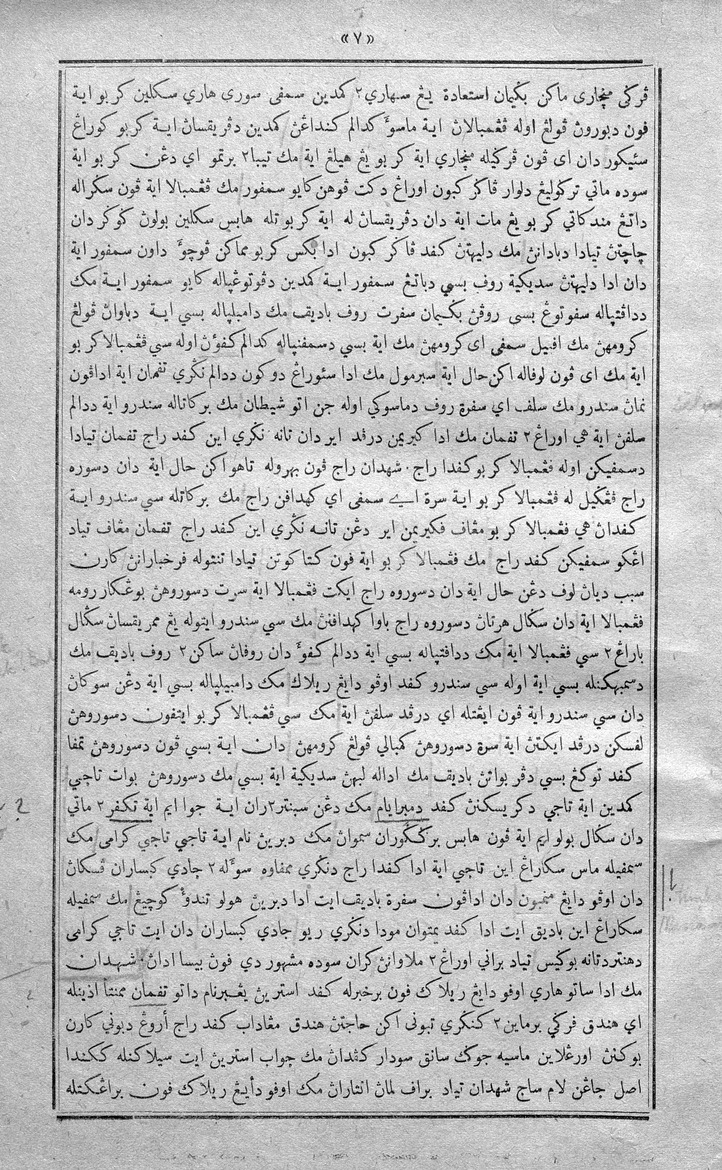 «٧»
ڤرݢي منچاري ماكن بݢيمان استعادة يڠ سهاري٢ كمدين سمڤي سوري هاري سكلين كربو اية
ڤون دبوروڽ ڤولڠ اوله ڤڠمبالاڽ اية ماسوٴ كدالم كنداڠڽ كمدين دڤريقساڽ اية كربو كوراڠ
سئيكور دان اي ڤون ڤرݢيله منچاري اية كربو يڠ هيلڠ اية مك تيبا٢ برتمو اي دڠن كربو اية
سوده ماتي تركوليڠ دلوار ڤاݢر كبون اوراڠ دكت ڤوهن كايو سمڤور مك ڤڠمبالا اية ڤون سݢراله
داتڠ مندكاتي كربو يڠ مات اية دان دڤريقساڽ له اية كربو تله هابس سكلين بولون كوكر دان
چاچتڽ تيادا دبادانڽ مك دليهتڽ كڤد ڤاݢر كبون ادا بكس كربو مماكن ڤوچوٴ داون سمڤور اية
دان ادا دليهتڽ سديكية روڤ بسي دباتڠ سمڤور اية كمدين دڤوتوڠڽاله كايو سمڤور اية مك
ددا‌ڤتڽاله سڤوتوڠ بسي روڤڽ بݢيمان سڤرت روڤ باديق مك دامبيلڽاله بسي اية دباواڽ ڤولڠ
كرومهڽ مك اڤبيل سمڤي اي كرومهڽ مك اية بسي دسمڤنڽاله كدالم كڤوٴڽ اوله سي ڤڠمبالا كربو
اية مك اي ڤون لوڤاله اكن حال اية سبرمول مك ادا سئوراڠ دوكون ددالم نݢري تڤمان اية اداڤون
نماڽ سندرو مك سلڤ اي سڤرة روڤ دماسوكي اوله جن اتو شيطان مك بركاتاله سندرو اية ددالم
سلڤڽ اية هي اوراڠ٢ تڤمان مك ادا كيريمن درڤد اير دان تانه نݢري اين كڤد راج تڤمان تيادا
دسمڤيكن اوله ڤڠمبالا كربو كڤدا راج شهدان راج ڤون بهروله تاهو اكن حال اية دان دسوره
راج ڤڠݢيل له ڤڠمبالا كربو اية سرة اي سمڤي اي كهداڤن راج مك بركاتله سي سندرو اية
كڤداڽ هي ڤڠمبالا كربو مڠاڤ ڤكيريمن اير دڠن تانه نݢري اين كڤد راج تڤمان مڠاڤ تياد
اڠكو سمڤيكن كڤد راج مك ڤڠمبالا كربو اية ڤون كتاكوتن تيادا تنتوله ڤرخبارانڽ كارن
سبب دياڽ لوڤ دڠن حال اية دان دسوروه راج ايكت ڤڠمبالا اية سرت دسوروهڽ بوڠكار رومه
ڤڠمبالا اية دان سݢال هرتاڽ دسوروه راج باوا كهداڤنڽ مك سي سندرو ايتوله يڠ ممريقساڽ سݢال
باراڠ٢ سي ڤڠمبالا اية مك ددا‌ڤتڽاله بسي اية ددالم كڤوٴ دان روڤاڽ ساكن٢ روڤ باديق مك
دسمبهكنله بسي اية اوله سي سندرو كڤد اوڤو دايڠ ريلاك مك دامبيلڽاله بسي اية دڠن سوكاڽ
دان سي سندرو اية ڤون ايڠتله اي درڤد سلڤڽ اية مك سي ڤڠمبالا كربو ايتڤون دسوروهڽ
لڤسكن درڤد ايكتڽ اية سرة دسوروهڽ كمبالي ڤولڠ كرومهڽ دان اية بسي ڤون دسوروهڽ تمڤا
كڤد توكڠ بسي دڤربواتڽ باديق مك اداله لبهڽ سديكية اية بسي مك دسوروهڽ بوات تاجي
كمدين اية تاجي دكريسكنڽ كڤد دمبرايام مك دڠن سبنتر٢ران اية جوا ايم اية تكڤر٢ ماتي
دان سݢال بولو ايم اية ڤون هابس برݢݢوران سمواڽ مك دبرين نام اية تاجي تاجي كرامي مك
سمڤيله ماس سكاراڠ اين تاجي اية ادا كڤدا راج دنݢري ممڤاوه سوٴله٢ جادي كبساران ڤسكاڽ
دان اوڤو دايڠ منمبون دان اداڤون سڤرة باديق ايت ادا دبرين هولو تندوٴ كوچيڠ مك سمڤيله
سكاراڠ اين باديق ايت ادا كڤد يمتوان مودا دنݢري ريو جادي كبساران دان ايت تاجي كرامي
دهنتردتانه بوݢيس تياد براني اوراڠ٢ ملاوانڽ كران سوده مشهور دي ڤون بيسا اداڽ شهدان
مك ادا ساتو هاري اوڤو دايڠ ريلاك ڤون برخبرله كڤد استرين يڠبرنام داتو تڤمان ممنتا اذينله
اي هندق ڤرݢي برماين٢ كنݢري تبوني اكن حاجتڽ هندق مڠاداب كڤد راج أروڠ دبوني كارن
بوكنڽ اورڠلاين ماسيه جوݢ سانق سودار كڤداڽ مك جواب استرين ايت سيلاكنله ككندا
اصل جاڠن لام ساج شهدان تياد براڤ لماڽ انتاراڽ مك اوڤو دأيڠ ريلاك ڤون براڠكتله